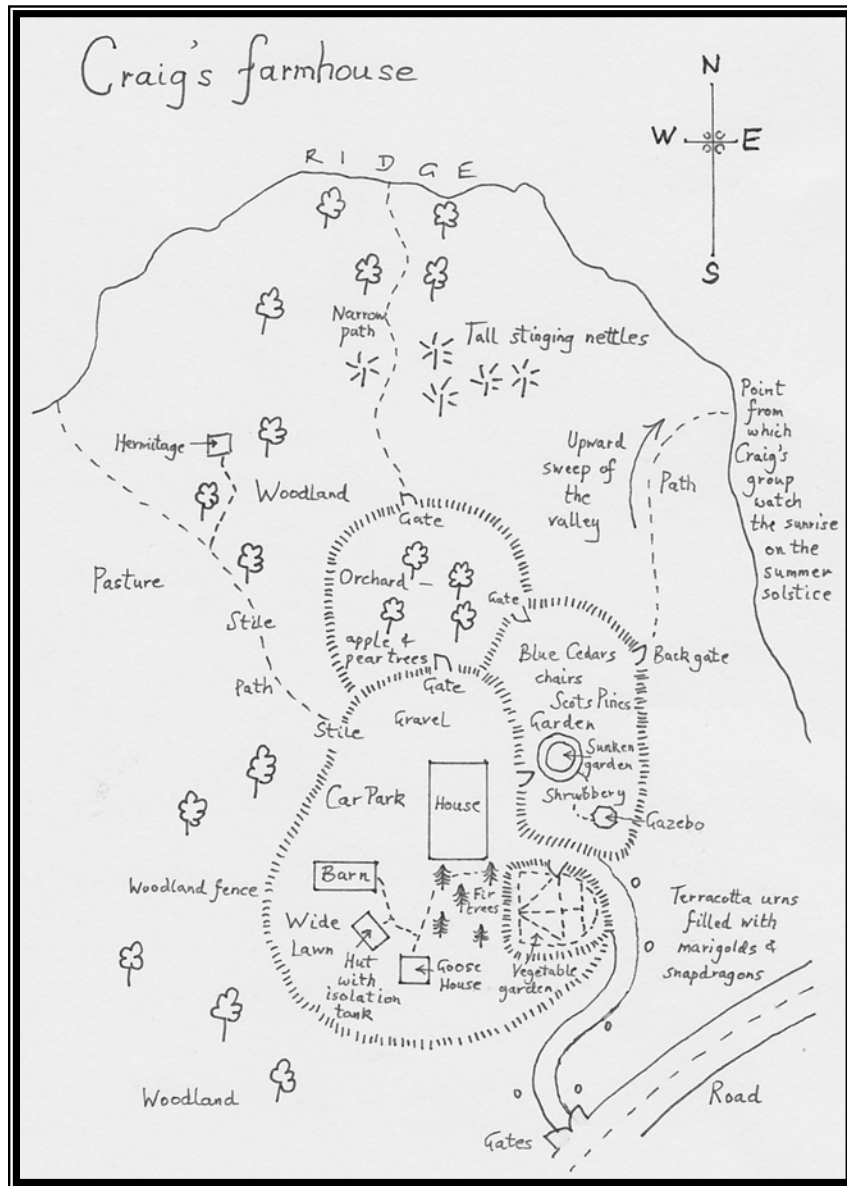 Craig's farmhouse
N
W E
S
RIDGE
Narrow
path
Tall stinging nettles
Point
from
which
Craig's
group
watch
the sunrise
on the
summer
solstice
Hermitage
Upward
sweep of
the
valley
Path
Woodland
Gate
Pasture
Stile
Path
Stile
Orchard
apple &
pear trees
Gate
Gate
Blue Cedars
chairs
Scots Pines
Garden
Back gate
Gravel
Sunken
garden
Shrubbery
Gazebo
Car Park
House
Barn
Fir
trees
Woodland fence
Wide
Lawn
Hut
with
isolation
tank
Goose
House
Vegetable
garden
Terracotta urns
filled with
marigolds &
snapdragons
Woodland
Road
Gates